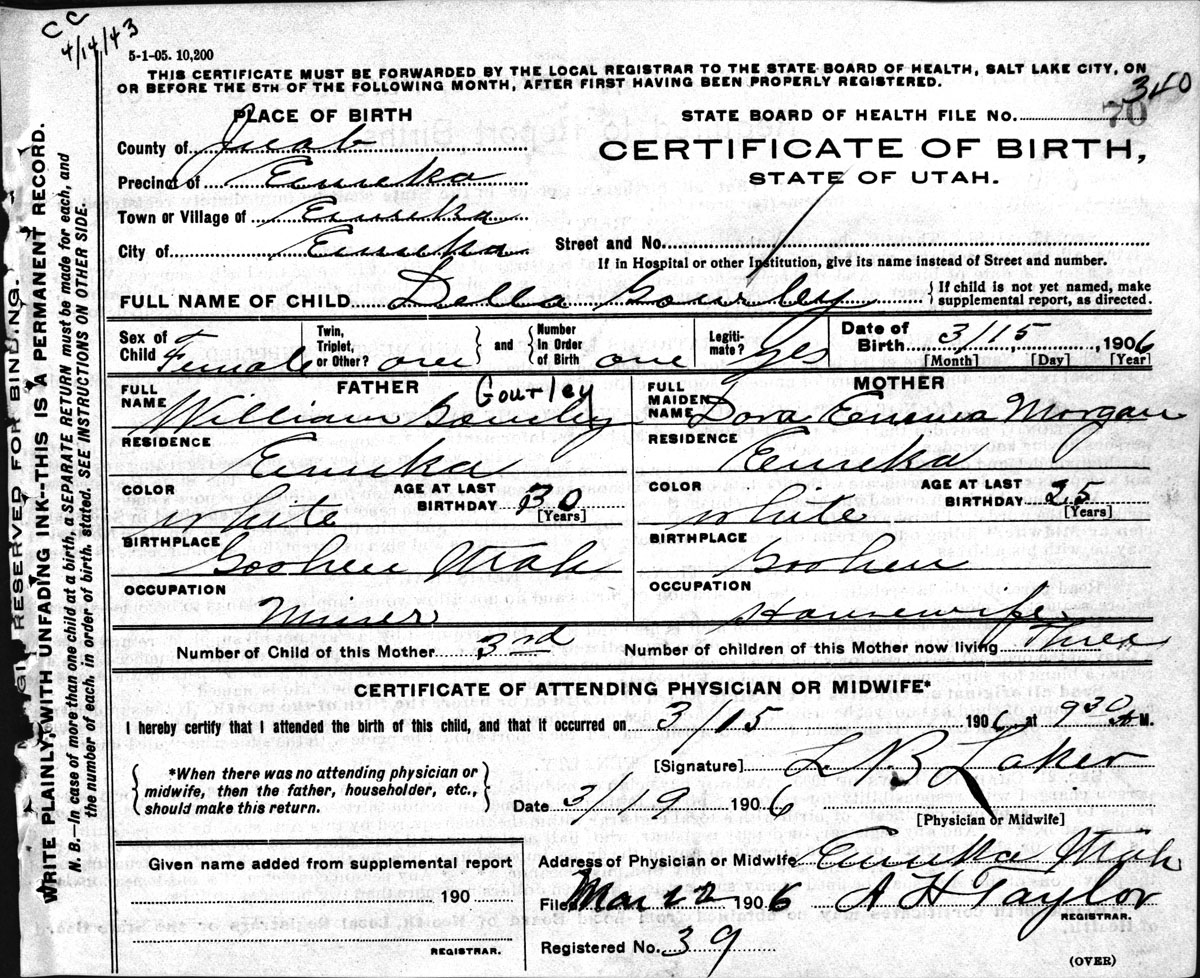 CC
4/14/43
5-1-05. 10,200
THIS CERTIFICATE MUST BE FORWARDED BY THE LOCAL REGISTRAR TO THE STATE BOARD OF HEALTH, SALT LAKE CITY, ON
OR BEFORE THE 5TH OF THE FOLLOWING MONTH, AFTER FIRST HAVING BEEN PROPERLY REGISTERED.
340
PLACE OF BIRTH
STATE BOARD OF HEALTH FILE No. 70
County of Juab
CERTIFICATE OF BIRTH,
Precinct of Eureka
STATE OF UTAH.
Town or Village of Eureka
City of Eureka
Street and No.
If in Hospital or other Institution, give its name instead of Street and number.
FULL NAME OF CHILD Della Gourley
{ If child is not yet named, make
supplemental report, as directed.
Sex of Child Female
Twin, Triplet, or Other? one
} and {
Number In Order of Birth one
Legiti-mate? yes
Date of Birth 3/15, 1906
[Month] [Day] [Year]
FATHER
FULL NAME William Gourley
Gourley
MOTHER
FULL MAIDEN NAME Dora Emma Morgan
RESIDENCE Eureka
RESIDENCE Eureka
COLOR white
AGE AT LAST BIRTHDAY 30
[Years]
COLOR white
AGE AT LAST BIRTHDAY 25
[Years]
BIRTHPLACE Goshen Utah
BIRTHPLACE Goshen
OCCUPATION Miner
OCCUPATION Housewife
Number of Child of this Mother 3rd
Number of children of this Mother now living Three
CERTIFICATE OF ATTENDING PHYSICIAN OR MIDWIFE*
I hereby certify that I attended the birth of this child, and that it occurred on 3/15 1906 at 930 A M.
{ *When there was no attending physician or
midwife, then the father, householder, etc.,
should make this return. }
[Signature] L B Laker
Date 3/19 1906
[Physician or Midwife]
Given name added from supplemental report
190
REGISTRAR.
Address of Physician or Midwife Eureka Utah
Filed Mar 22 1906 A H Taylor
REGISTRAR.
Registered No. 39
(OVER)
MARGIN RESERVED FOR BINDING.
WRITE PLAINLY, WITH UNFADING INK--THIS IS A PERMANENT RECORD.
N. B.—In case of more than one child at a birth, a SEPARATE RETURN must be made for each, and
the number of each, in order of birth, stated. SEE INSTRUCTIONS ON OTHER SIDE.